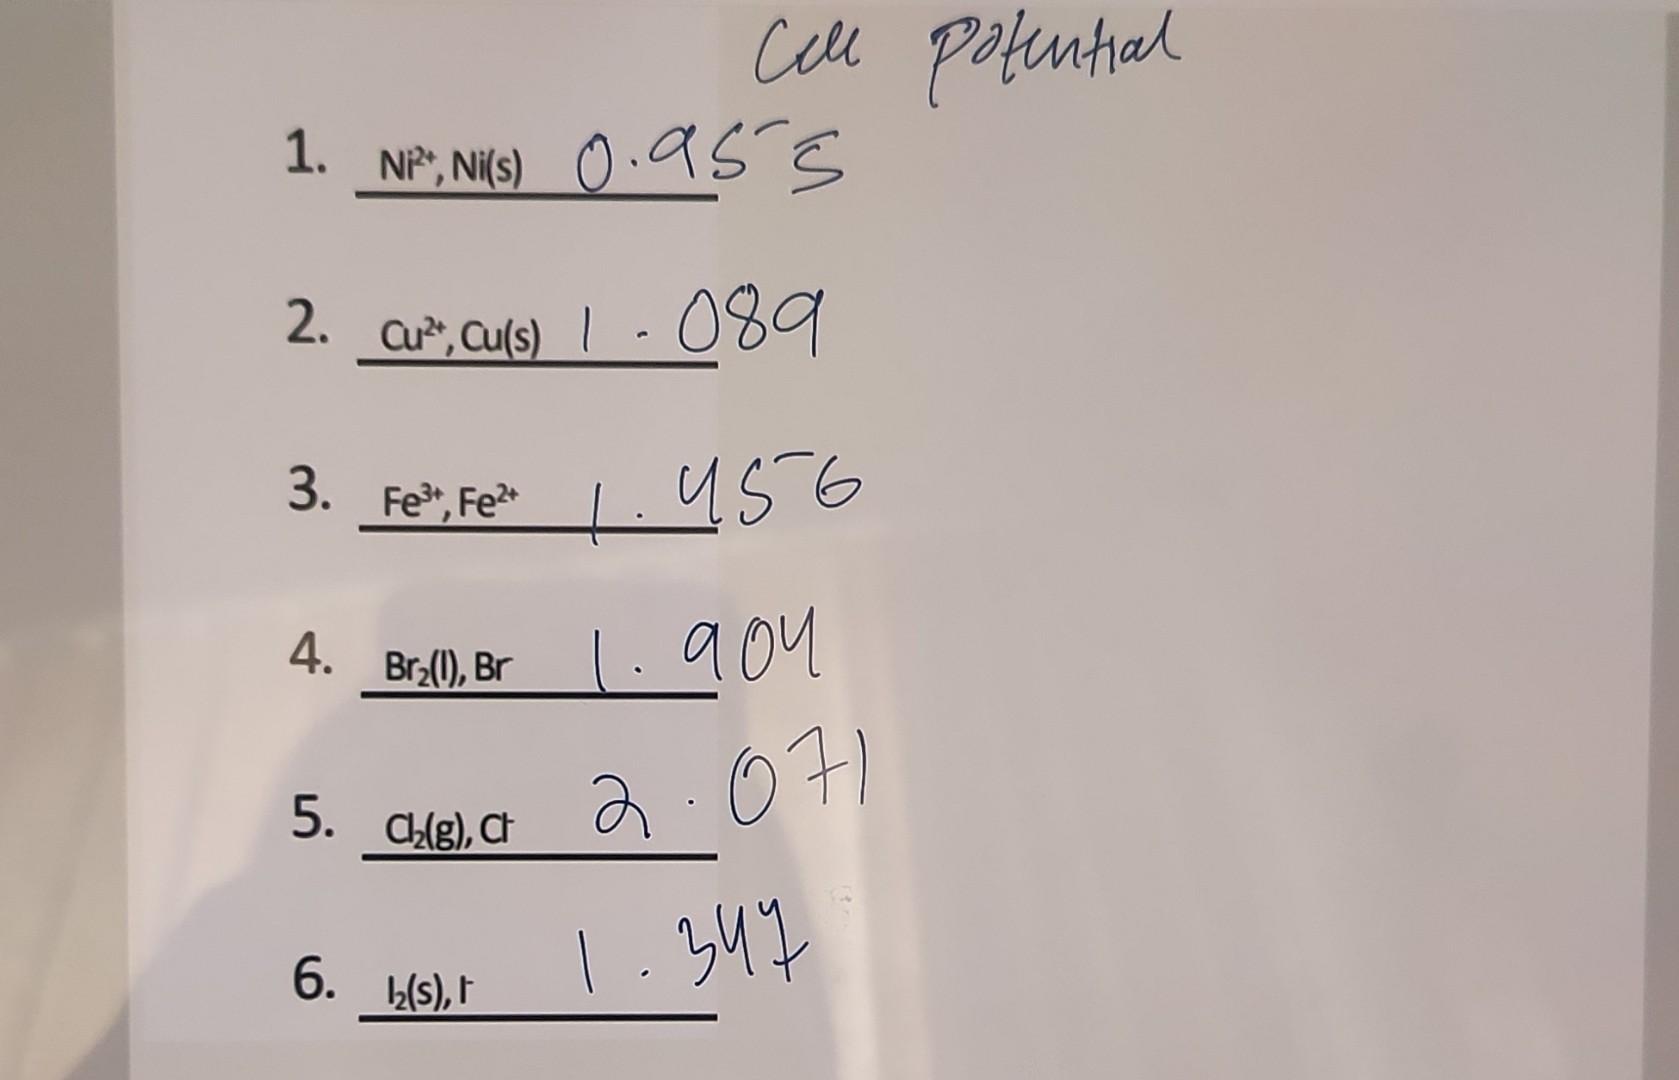 Cell Potential
1. Ni²⁺, Ni(s) 0.955
2. Cu²⁺, Cu(s) 1.089
3. Fe³⁺, Fe²⁺ 1.456
4. Br₂(l), Br 1.904
5. Cl₂(g), Cl⁻ 2.071
6. I₂(s), I⁻ 1.347